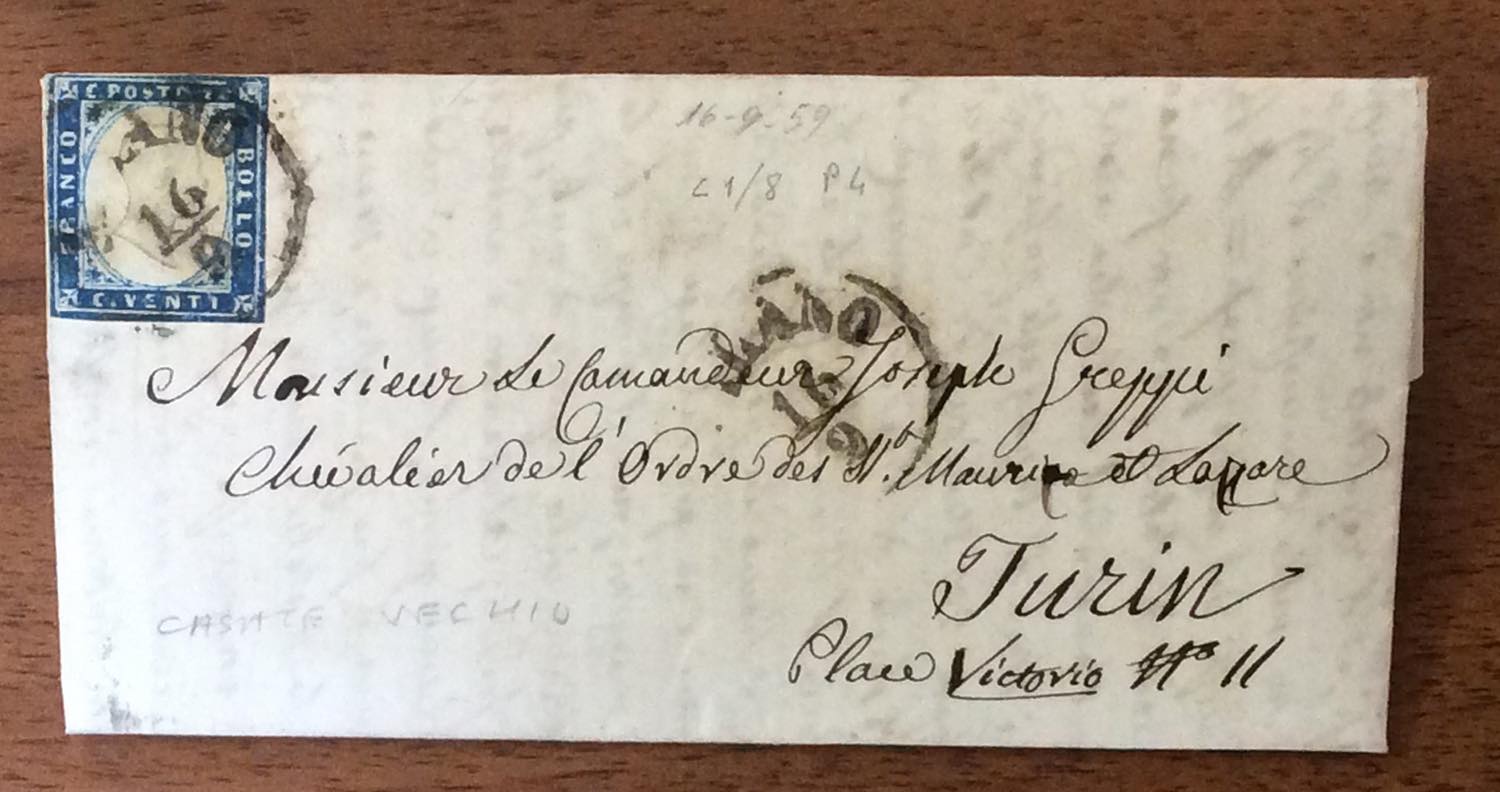 C. POSTE
FRANCO
BOLLO
C. VENTI
LANO
16/9
16-9-59
C1/8 P4
LANO
16
9
Monsieur Le Comandeur Joseph Greppi
Chévalièr de l'Ordre des St. Maurice et Lazzare
Turin
Place Victorio No 11
CASATE VECHIO